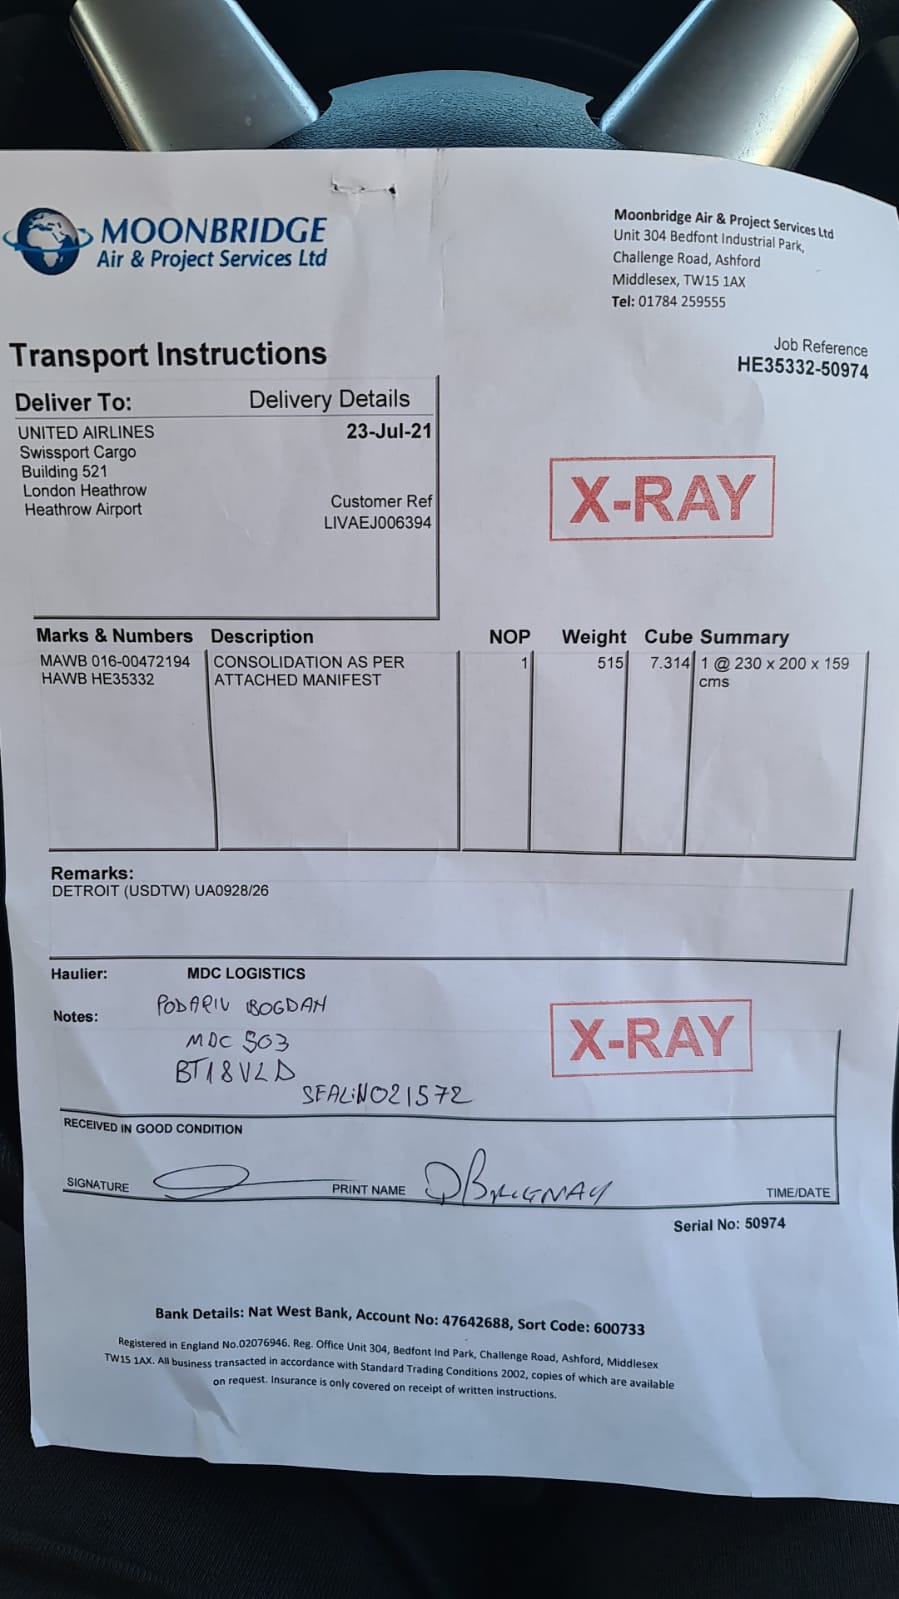 MOONBRIDGE
Air & Project Services Ltd
Moonbridge Air & Project Services Ltd
Unit 304 Bedfont Industrial Park,
Challenge Road, Ashford
Middlesex, TW15 1AX
Tel: 01784 259555
Job Reference
HE35332-50974
Transport Instructions
Deliver To: Delivery Details
UNITED AIRLINES 23-Jul-21
Swissport Cargo
Building 521
London Heathrow
Heathrow Airport
Customer Ref
LIVAEJ006394
X-RAY
Marks & Numbers Description NOP Weight Cube Summary
MAWB 016-00472194 CONSOLIDATION AS PER 1 515 7.314 1 @ 230 x 200 x 159
HAWB HE35332 ATTACHED MANIFEST cms
Remarks:
DETROIT (USDTW) UA0928/26
Haulier: MDC LOGISTICS
Notes: PODARIU BOGDAN
MDC 503
BT18VLD
SEAL:N021572
X-RAY
RECEIVED IN GOOD CONDITION
SIGNATURE PRINT NAME TIME/DATE
Serial No: 50974
Bank Details: Nat West Bank, Account No: 47642688, Sort Code: 600733
Registered in England No.02076946. Reg. Office Unit 304, Bedfont Ind Park, Challenge Road, Ashford, Middlesex
TW15 1AX. All business transacted in accordance with Standard Trading Conditions 2002, copies of which are available
on request. Insurance is only covered on receipt of written instructions.